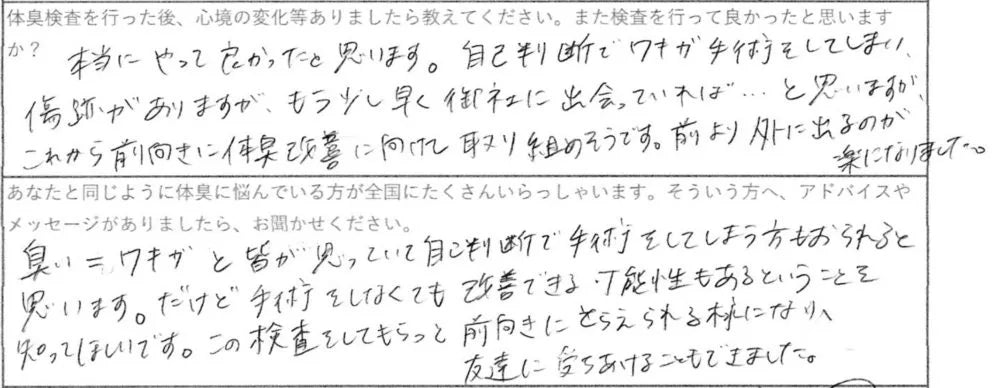 体臭検査を行った後、心境の変化等ありましたら教えてください。また検査を行って良かったと思います
か？
本当に やって 良かったと 思います。 自己判断で ワキガ手術をしてしまい、
傷跡がありますが、もう少し早く御社に出会っていれば…と思いますが、
これから前向きに体臭改善に向けて取り組めそうです。前より外に出るのが
楽になりました。
あなたと同じように体臭に悩んでいる方が全国にたくさんいらっしゃいます。そういう方へ、アドバイスや
メッセージがありましたら、お聞かせください。
臭い＝ワキガ と皆が思っていて自己判断で手術をしてしまう方もおられると
思います。だけど手術をしなくても改善できる可能性もあるということを
知ってほしいです。この検査をしてもらって前向きにとらえられる様になり、
友達に打ちあけることもできました。